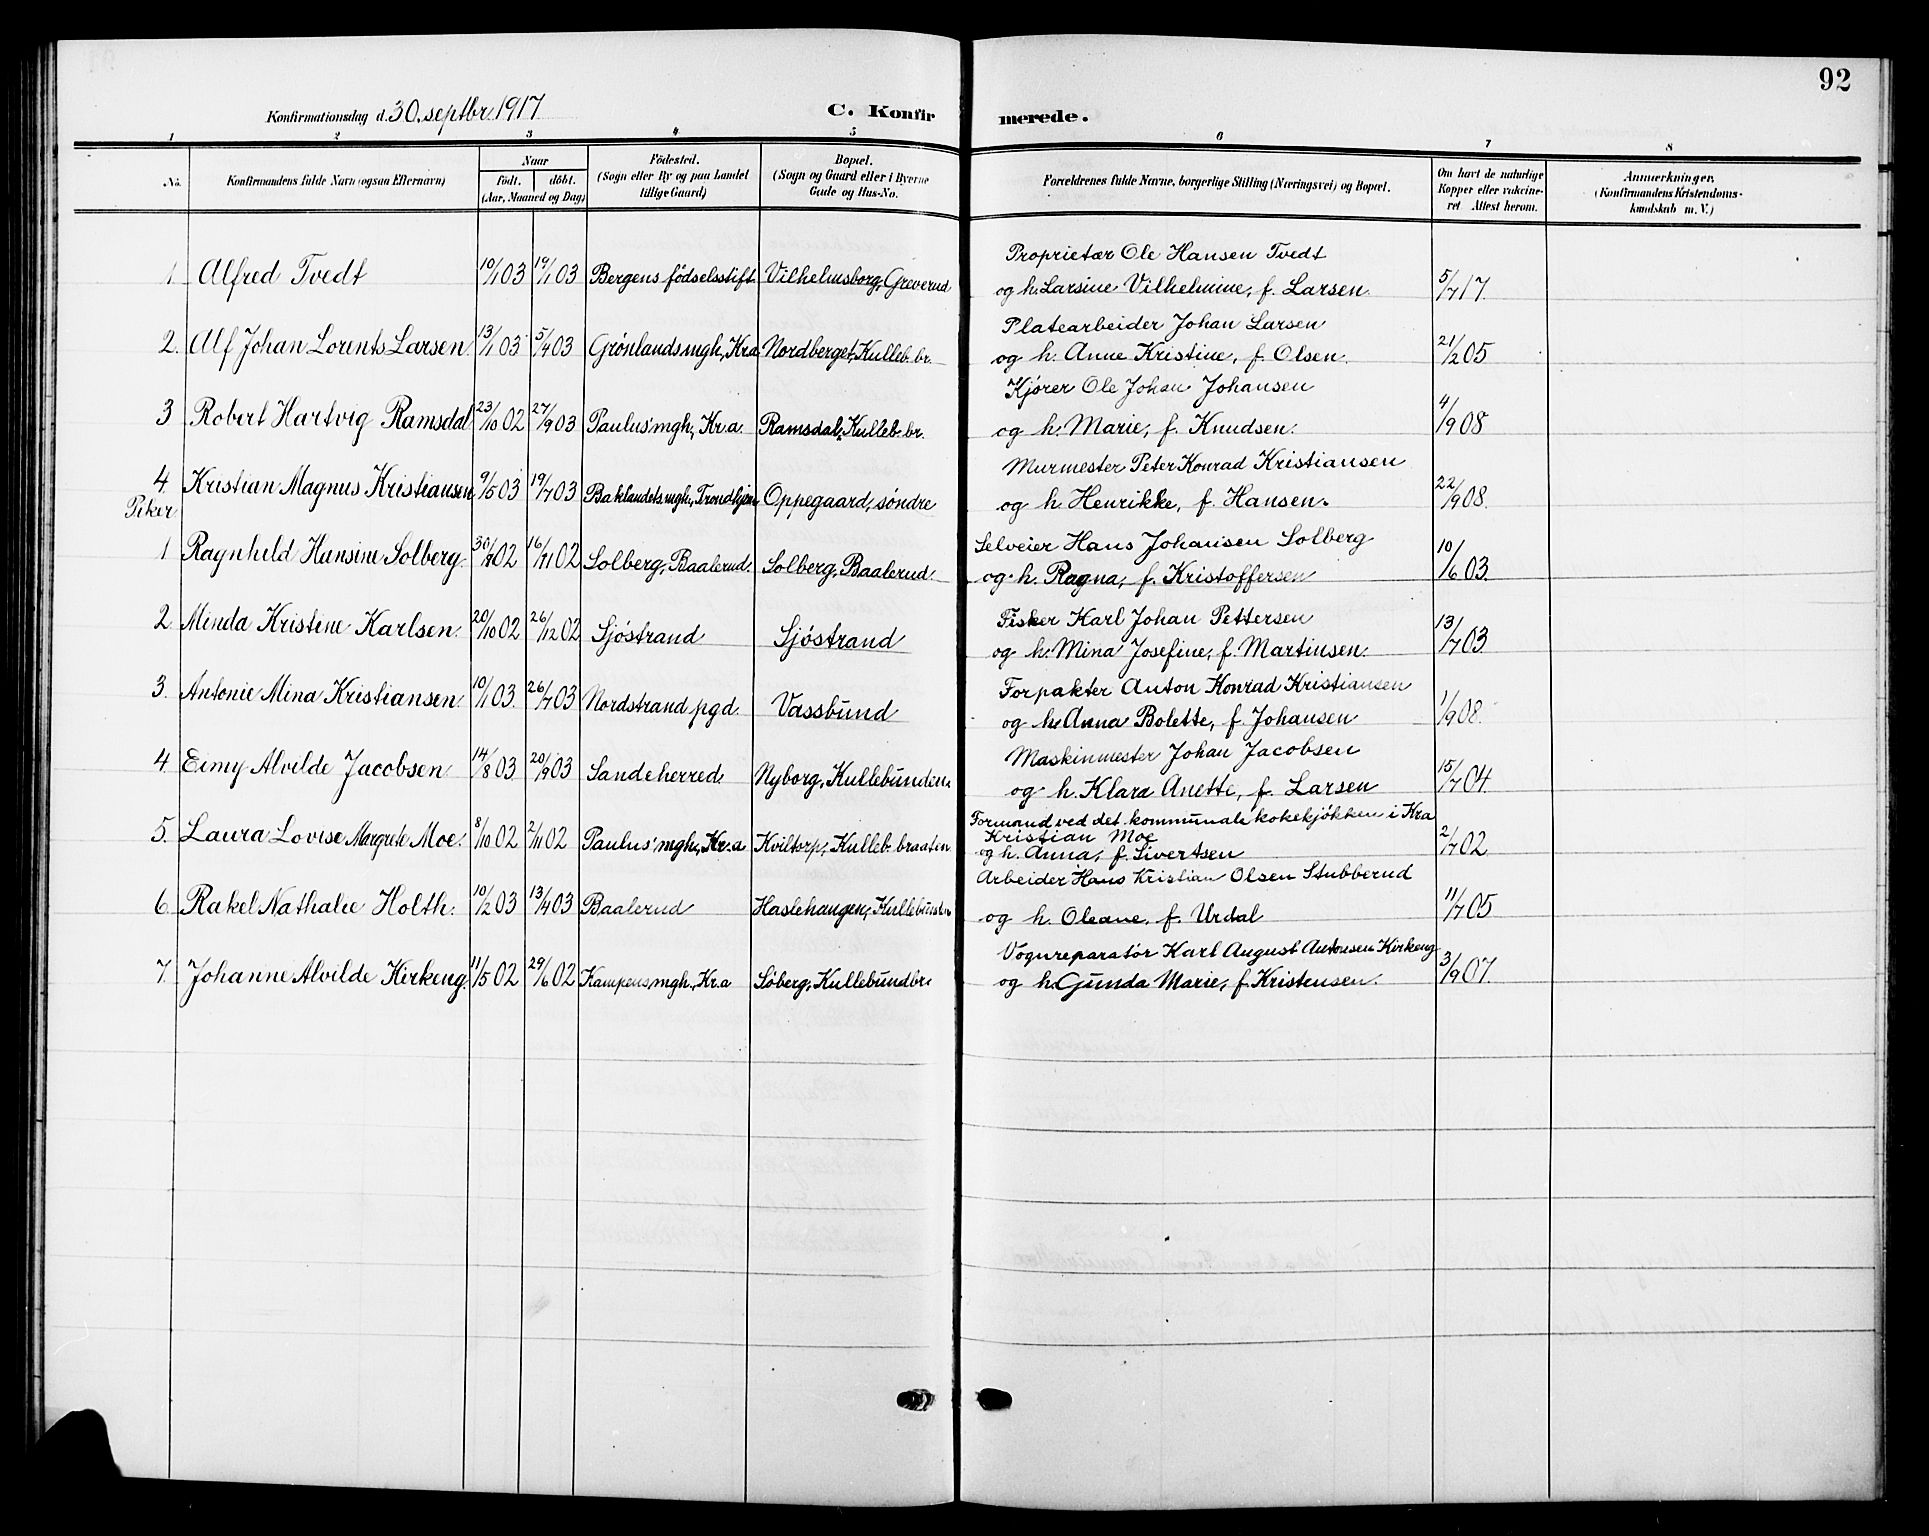 92
Konfirmationsdag d. 30. septbr. 1917 C. Konfirmerede.
1 2 3 4 5 6 7 8
No. Konfirmandens fulde Navn (ogsaa Efternavn) Naar født. døbt. (Aar, Maaned og Dag) Födested. (Sogn eller By og paa Landet tillige Gaard) Bopæl. (Sogn og Gaard eller i Byerne Gade og Hus-No. Forældrenes fulde Navne, borgerlige Stilling (Næringsvei) og Bopæl. Om havt de naturlige Kopper eller vakcineret Attest herom. Anmerkninger. (Konfirmandens Kristendomskundskab m. V.)
Proprietær Ole Hansen Tvedt
1. Alfred Tvedt 10/1 03 19/1 03 Bergens fødselsstift. Vilhelmsborg, Greverud og h. Larsine Vilhelmine, f. Larsen. 5/7 17.
Platearbeider Johan Larsen
2. Alf Johan Lorents Larsen. 13/1 03 5/4 03 Grønlands mgh., Kra. Nordberget, Kulleb.br. og h. Anne Kristine, f. Olsen. 21/2 05
Kjører Ole Johan Johansen
3 Robert Hartvig Ramsdal 23/10 02 27/9 03 Paulus' mgh., Kr.a. Ramsdal, Kulleb.br. og h. Marie, f. Knudsen. 4/9 08
Murmester Peter Konrad Kristiansen
4. Kristian Magnus Kristiansen 9/5 03 19/7 03 Baklandets mgh., Trondhjem Oppegaard, søndre og h. Henrikke, f. Hansen. 22/9 08.
Piker
Selveier Hans Johansen Solberg
1 Raynhild Hansine Solberg. 30/8 02 16/11 02 Solberg, Baalerud. Solberg, Baalerud. og h. Ragna, f. Kristoffersen 10/6 03.
Fisker Karl Johan Pettersen
2. Minda Kristine Karlsen. 20/10 02 26/12 02 Sjöstrand Sjöstrand og h. Mina Josefine, f. Martinsen. 13/7 03
Forpakter Anton Konrad Kristiansen
3. Antonie Mina Kristiansen. 10/1 03. 26/7 03 Nordstrand pgd. Vassbund og h. Anna Bolette, f. Johansen 1/9 08.
Maskinmester Johan Jacobsen
4. Eimy Alvilde Jacobsen. 14/8 03 20/9 03 Sandeherred. Nyborg, Kullebunden. og h. Klara Anette, f. Larsen 15/7 04.
Formand ved det kommunale kokekjøkken i Kra
Kristian Moe
5. Laura Lovise Margrete Moe. 8/10 02 2/11 02 Paulus' mgh., Kr.a Kviltorp, Kulleb.braaten og h. Anna, f. Sivertsen 2/7 02
Arbeider Hans Kristian Olsen Stubberud
6. Rakel Nathalie Holth. 10/2 03 13/4 03 Baalerud Haslehaugen, Kullebunden og h. Oleane, f. Urdal 11/7 05
Vognreparatør Karl August Antonsen Kirkeng
7. Johanne Alvilde Kirkeng. 11/5 02 29/6 02 Kampens mgh., Kr.a Söberg, Kullebundbr. og h. Gunda Marie, f. Kristensen. 3/9 07.